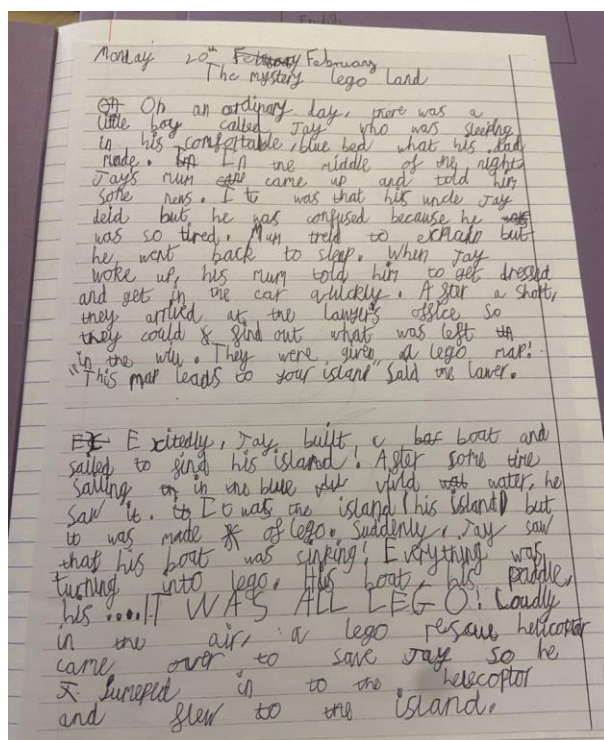 English
Monday 20th February February
The mystery lego land
On an ordinary day, there was a
little boy called Jay who was sleeping
in his comfortable, blue bed what his dad
made. In the middle of the night
Jay's mum came up and told him
some news. It was that his uncle Jay
deid but, he was confused because he was
was so tired. Mum treid to explain but
he went back to sleep. When Jay
woke up, his mum told him to get dressed
and get in the car quickly. After a short,
they arrived at the lawyers office so
they could find out what was left
in the will. They were given a lego map!
"This map leads to your island" said the lawer.
Exitedly, Jay built a boat and
sailed to find his island! After some time
sailing in the blue vivid water, he
saw it. It was the island (his island) but
it was made of lego. Suddenly, Jay saw
that his boat was sinking! Everything was
turning into lego. His boat, his paddle,
his ....IT WAS ALL LEGO! Loudly
in the air, a lego rescue helicoptor
came over to save Jay so he
Jumeped in to the helecoptor
and flew to the island.